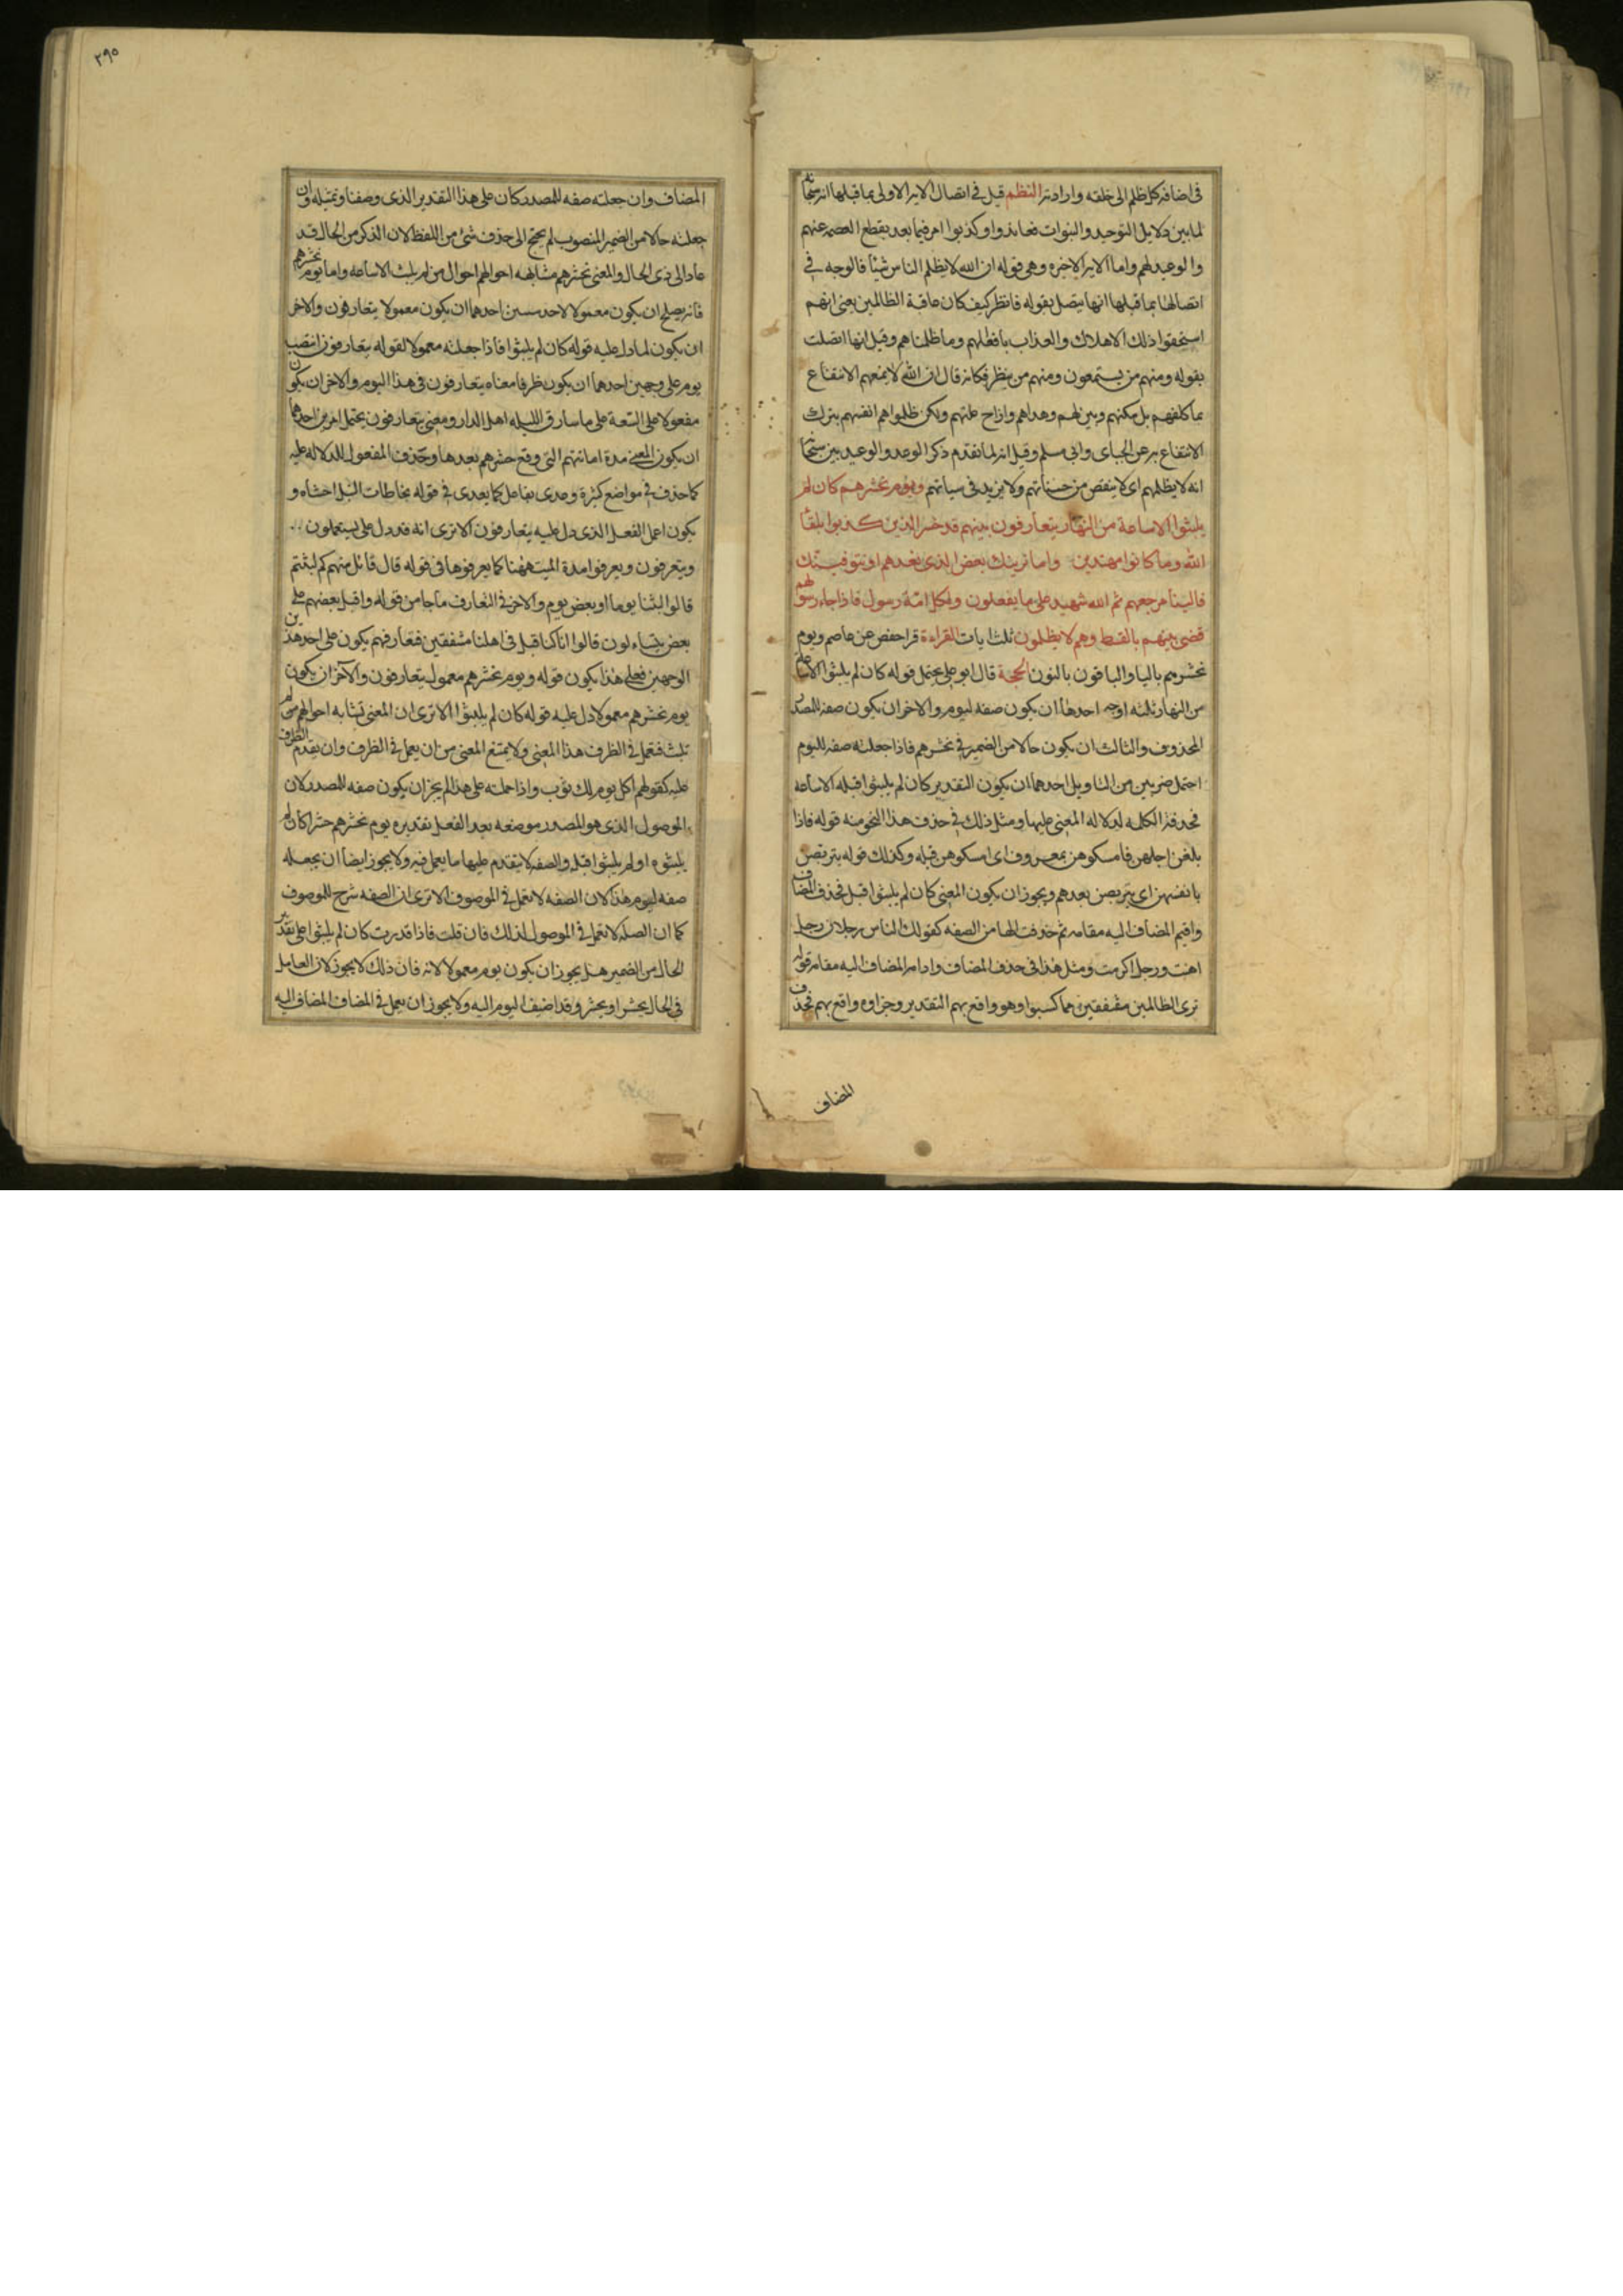 في اضافة كل ظلم الى خلقه وارادته النظم قيل في اتصال الاية الاولى بما قبلها انه سبحانه
لما بين دلايل التوحيد والنبوات فعاندوا وكذبوا امر فيما بعد بقطع العصمة عنهم
والوعيد لهم واما الاية الاخيرة وهي قوله ان الله لا يظلم الناس شيئا فالوجه في
اتصالها بما قبلها انها يتصل بقوله فانظر كيف كان عاقبة الظالمين يعني انهم
استحقوا ذلك الاهلاك والعذاب بافعالهم وما ظلمناهم وقيل انها اتصلت
بقوله ومنهم من يستمعون ومنهم من ينظر فكانه قال ان الله لا يمنعهم الانتفاع
بما كلفهم بل مكنهم وبين لهم وهداهم وازاح علتهم ولكن ظلموا هم انفسهم بترك
الانتفاع به عن الجباى وابي مسلم وقيل انه لما تقدم ذكر الوعد والوعيد بين سبحانه
انه لا يظلمهم اي لا ينقص من حسناتهم ولا يزيد في سياتهم ويوم نحشرهم كان لم
يلبثوا الا ساعة من النهار يتعارفون بينهم قد خسر الذين كذبوا بلقاء
الله وما كانوا مهتدين واما نرينك بعض الذي نعدهم او نتوفينك
فالينا مرجعهم ثم الله شهيد على ما يفعلون ولكل امة رسول فاذا جاء رسولهم
قضى بينهم بالقسط وهم لا يظلمون ثلث ايات القراءة قرا حفص عن عاصم ويوم
يحشرهم باليا والباقون بالنون الحجة قال ابو علي يحتمل قوله كان لم يلبثوا الا ساعة
من النهار ثلثة اوجه احدها ان يكون صفة ليوم والاخر ان يكون صفة للمصدر
المحذوف والثالث ان يكون حالا من الضمير في نحشرهم فاذا جعلته صفة لليوم
احتمل ضربين من التاويل احدهما ان يكون التقدير كان لم يلبثوا قبله الا ساعة
فحذفت الكلمة لدلالة المعنى عليها ومثل ذلك في حذف هذا النحو منه قوله فاذا
بلغن اجلهن فامسكوهن بمعروف اي امسكوهن قبله وكذلك قوله يتربصن
بانفسهن اي يتربصن بعدهم ويجوز ان يكون المعنى كان لم يلبثوا قبل فحذف المضاف
واقيم المضاف اليه مقامه ثم حذفت الها من الصفة كقولك الناس رجلان رجل
اهنت ورجل اكرمت ومثل هذا في حذف المضاف واقامة المضاف اليه مقامه قوله
ترى الظالمين مشفقين مما كسبوا وهو واقع بهم التقدير وجزاوه واقع بهم فحذف
المضاف
٢٩٥
المضاف وان جعلته صفة للمصدر كان على هذا التقدير الذي وصفنا وتمثيله وان
جعلته حالا من الضمير المنصوب لم يحتج الى حذف شئ من اللفظ لان الذكر من الحال قد
عاد الى ذي الحال والمعنى نحشرهم مشابهة احوالهم احوال من لم يلبث الا ساعة واما يوم نحشرهم
فانه يصلح ان يكون معمولا لاحد شيئين احدهما ان يكون معمولا يتعارفون والاخر
ان يكون لما دل عليه قوله كان لم يلبثوا فاذا جعلته معمولا لقوله يتعارفون انتصب
يوم على وجهين احدهما ان يكون ظرفا معناه يتعارفون في هذا اليوم والاخر ان يكون
مفعولا على السعة على يا سارق الليلة اهل الدار ومعنى يتعارفون يحتمل امرين احدهما
ان يكون المعنى مدة اماتتهم التي وقع حشرهم بعدها وحذف المفعول للدلالة عليه
كما حذف في مواضع كثيرة وعدى تفاعل كما يعدى في قوله تخاطات النبل احشاه و
يكون اعمل الفعل الذي دل عليه يتعارفون الا ترى انه قد دل على يستعملون
ويتعرفون ويعرفوا مدة الميت ههنا كما يعرفوها في قوله قال قائل منهم كم لبثتم
قالوا لبثنا يوما او بعض يوم والاخر في التعارف ما جا من قوله واقبل بعضهم على
بعض يتساءلون قالوا انا كنا قبل في اهلنا مشفقين فتعارفهم يكون على احد هذين
الوجهين فعلى هذا يكون قوله ويوم نحشرهم معمول يتعارفون والآخر ان يكون
يوم نحشرهم معمولا دل عليه قوله كان لم يلبثوا الا ترى ان المعنى تشابه احوالهم من لم
يلبث فتعمل في الظرف هذا المعنى ولا يمتنع المعنى من ان يعمل في الظرف وان تقدم الظرف
عليه كقولهم اكل يوم لك ثوب واذا حملته على هذا لم يجز ان يكون صفة للمصدر لان
الموصول الذي هو المصدر موضعه بعد الفعل تقديره يوم نحشرهم حشرا كان لم
يلبثوه او لم يلبثوا قبله والصفة لا يتقدم عليها ما يعمل فيه ولا يجوز ايضا ان يجعله
صفة ليوم هذا لان الصفة لا تعمل في الموصوف الا ترى ان الصفة شرح للموصوف
كما ان الصلة لا تعمل في الموصول لذلك فان قلت فاذا قدرت كان لم يلبثوا على تقدير
الحال من الضمير هل يجوز ان يكون يوم معمولا لانه فان ذلك لا يجوز لان العامل
في الحال يحشر او نحشر وقد اضيف اليوم اليه ولا يجوز ان يعمل في المضاف المضاف اليه